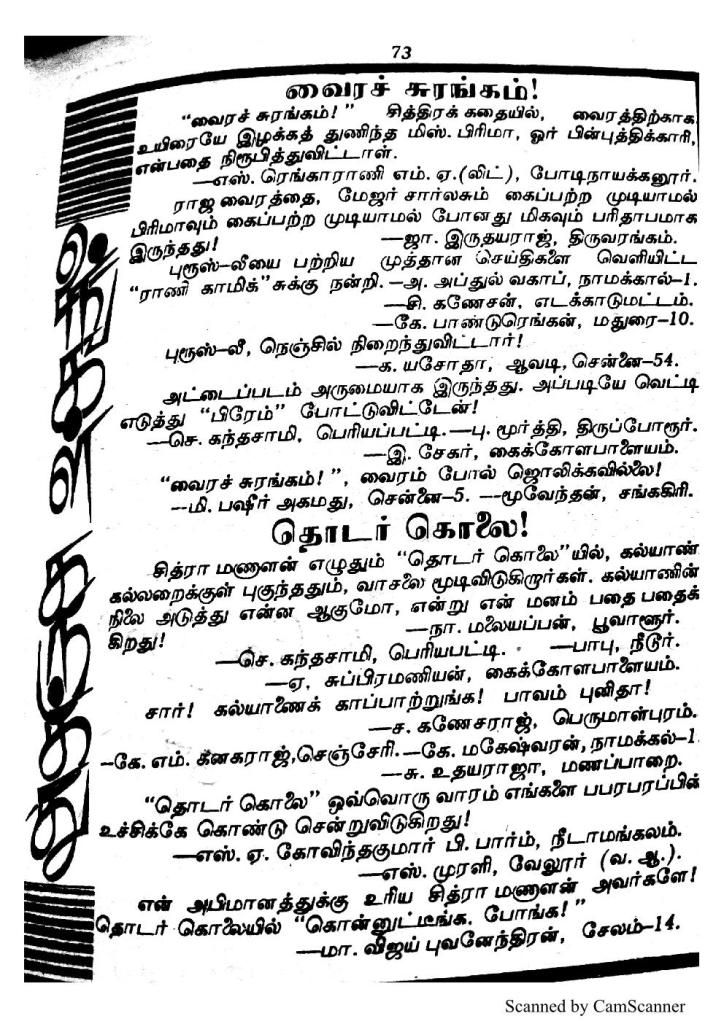 73
வைரச் சுரங்கம்!
"வைரச் சுரங்கம்!" சித்திரக் கதையில், வைரத்திற்காக
உயிரையே இழக்கத் துணிந்த மிஸ். பிரிமா, ஓர் பின்புத்திக்காரி,
என்பதை நிரூபித்துவிட்டாள்.
—எஸ். ரெங்காராணி எம். ஏ.(லிட்), போடிநாயக்கனூர்.
ராஜ வைரத்தை, மேஜர் சார்லசும் கைப்பற்ற முடியாமல்
பிரிமாவும் கைப்பற்ற முடியாமல் போனது மிகவும் பரிதாபமாக
இருந்தது! —ஜா. இருதயராஜ், திருவரங்கம்.
புரூஸ்-லீயை பற்றிய முத்தான செய்திகளை வெளியிட்ட
"ராணி காமிக்"சுக்கு நன்றி. —அ. அப்துல் வகாப், நாமக்கால்-1.
—சி. கணேசன், எடக்காடுமட்டம்.
—கே. பாண்டுரெங்கன், மதுரை-10.
புரூஸ்-லீ, நெஞ்சில் நிறைந்துவிட்டார்!
—க. யசோதா, ஆவடி, சென்னை-54.
அட்டைப்படம் அருமையாக இருந்தது. அப்படியே வெட்டி
எடுத்து "பிரேம்" போட்டுவிட்டேன்!
—செ. கந்தசாமி, பெரியப்பட்டி. —பு. மூர்த்தி, திருப்போரூர்.
—இ. சேகர், கைக்கோளபாளையம்.
"வைரச் சுரங்கம்!", வைரம் போல் ஜொலிக்கவில்லை!
--மி. பஷீர் அகமது, சென்னை-5. --மூவேந்தன், சங்ககிரி.
தொடர் கொலை!
சித்ரா மணாளன் எழுதும் "தொடர் கொலை"யில், கல்யாண்
கல்லறைக்குள் புகுந்ததும், வாசலை மூடிவிடுகிறார்கள். கல்யாணின்
நிலை அடுத்து என்ன ஆகுமோ, என்று என் மனம் பதை பதைக்
கிறது! —நா. மலையப்பன், பூவாளூர்.
—செ. கந்தசாமி, பெரியபட்டி. —பாபு, நீடூர்.
—ஏ. சுப்பிரமணியன், கைக்கோளபாளையம்.
சார்! கல்யாணைக் காப்பாற்றுங்க! பாவம் புனிதா!
—ச. கணேசராஜ், பெருமாள்புரம்.
-கே. எம். கனகராஜ், செஞ்சேரி. —கே. மகேஷ்வரன், நாமக்கல்-1
—சு. உதயராஜா, மணப்பாறை.
"தொடர் கொலை" ஒவ்வொரு வாரம் எங்களை பபரபரப்பின்
உச்சிக்கே கொண்டு சென்றுவிடுகிறது!
—எஸ். ஏ. கோவிந்தகுமார் பி. பார்ம், நீடாமங்கலம்.
—எஸ். முரளி, வேலூர் (வ. ஆ.).
என் அபிமானத்துக்கு உரிய சித்ரா மணாளன் அவர்களே!
தொடர் கொலையில் "கொன்னுட்டீங்க. போங்க!"
—மா. விஜய் புவனேந்திரன், சேலம்-14.
இதழ்கள்
Scanned by CamScanner